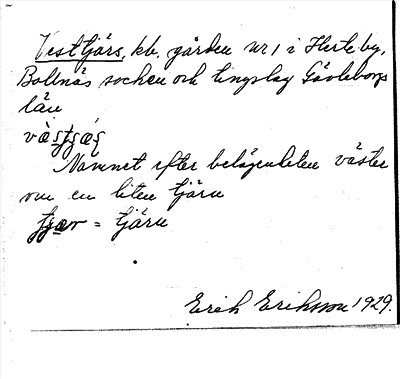 Vesttjärs, kb. gården nr 1 i Herte by,
Bollnäs socken och tingslag Gävleborgs
län
Namnet efter belägenheten väster
om en liten tjärn
= tjärn
Erik Eriksson 1929.